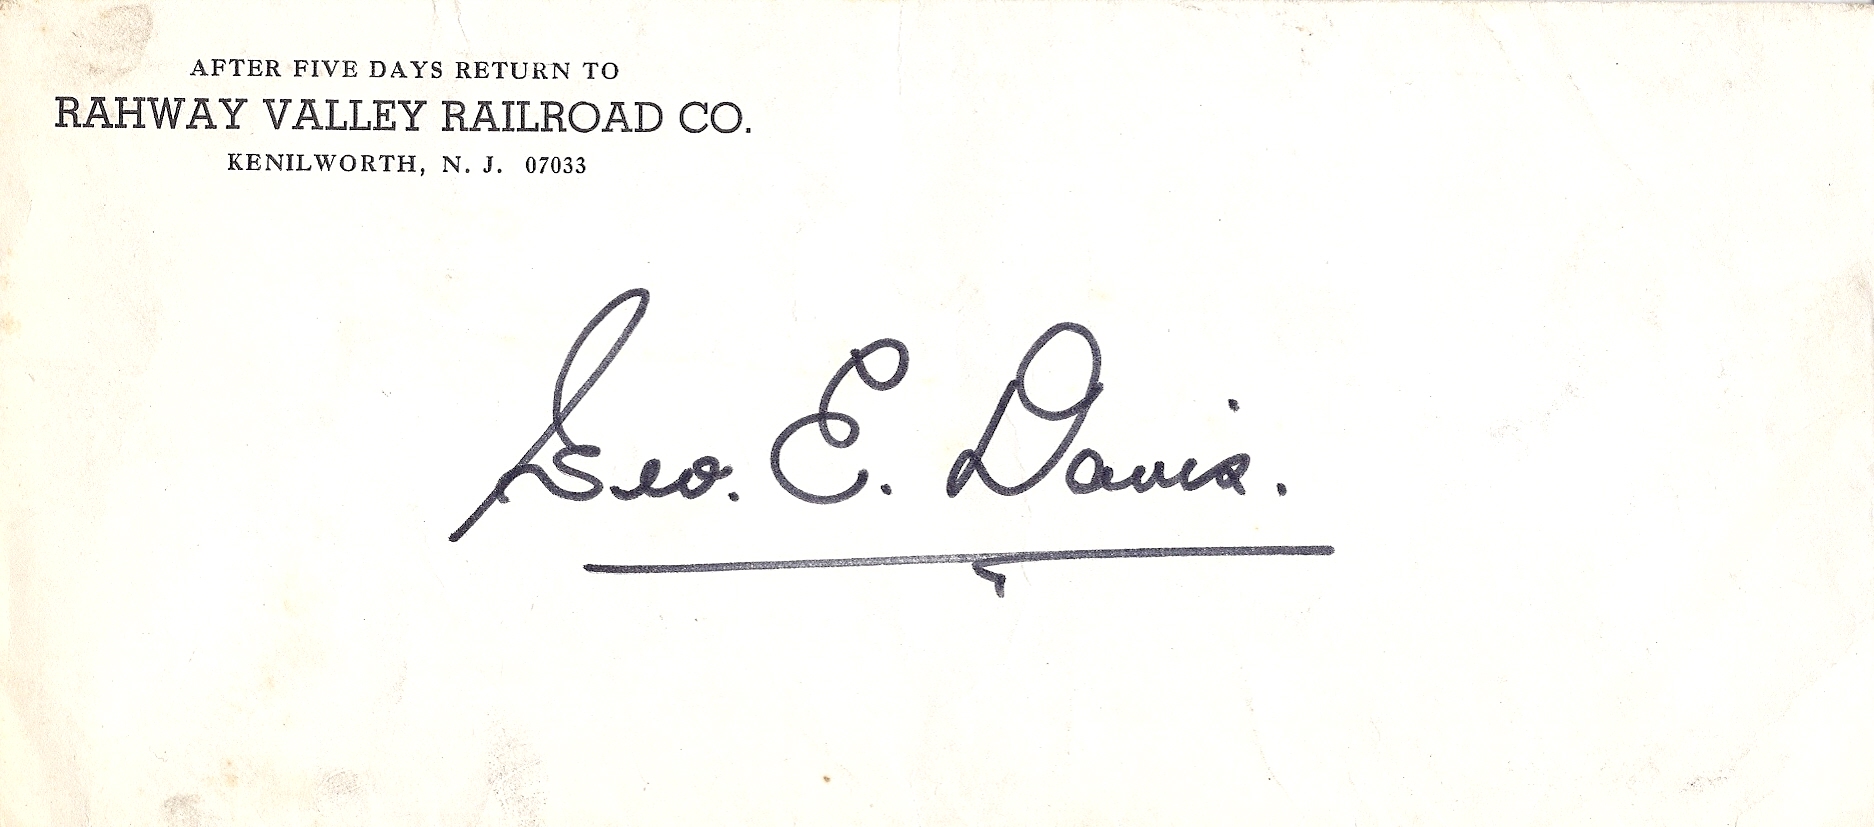 AFTER FIVE DAYS RETURN TO
RAHWAY VALLEY RAILROAD CO.
KENILWORTH, N. J. 07033
Geo. E. Davis.